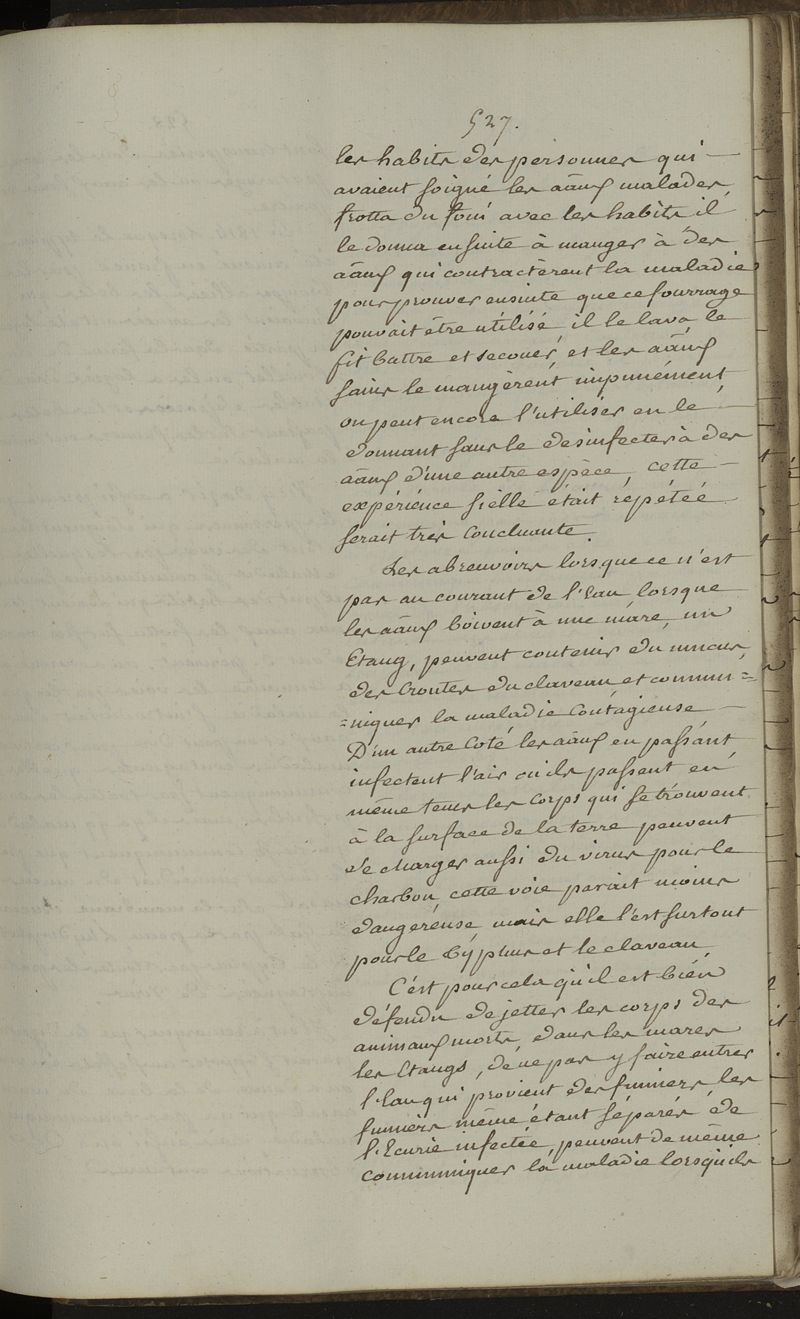 527.
les habits des personnes qui —
avaient soigné les aãux malades,
frotta du foin avec les habits il
le donna ensuite à manger à des
aãux qui contractèrent la maladie
pour prouver ensuite que ce fourrage
pouvait être utilisé il le lava le
fit battre et secouer, et les aãux
sains le mangèrent impunément
on peut encore l'utiliser en le —
donnant sans le desinfecter à des
aãux d'une autre espèce, cette —
expérience si elle était répétée
serait très concluante.
Les abreuvoirs lorsque ce n'est
pas au courant de l'Eau lorsque
les aãux boivent à une mare, un
Etang, peuvent contenir du mucus,
des Croutes du claveau et commu=
=niquer la maladie contagieuse —
D'un autre Coté les aãux en passant
infectent l'air où ils passent en
même tems les corps qui se trouvent
à la surface de la terre peuvent
se charger aussi du virus pour le
charbon, cette voie parait moins
dangereuse mais elle l'est surtout
pour le typhus et le claveau,
C'ést pour cela qu'il est bien
défendu de jetter les corps des
animaux morts, dans les mares
les Etangs, de ne pas y faire entrer
l'Eau qui provient des fumiers, les
fumiers même étant séparés de
l'Ecurie infectée, peuvent de même
communiquer la maladie lorsqu'ils